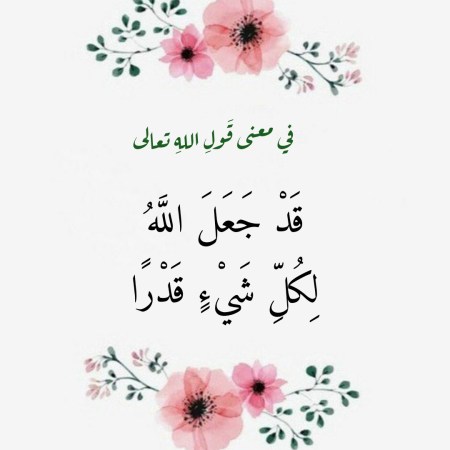 في معنى قَولِ اللهِ تعالى
قَدْ جَعَلَ اللَّهُ
لِكُلِّ شَيْءٍ قَدْرًا